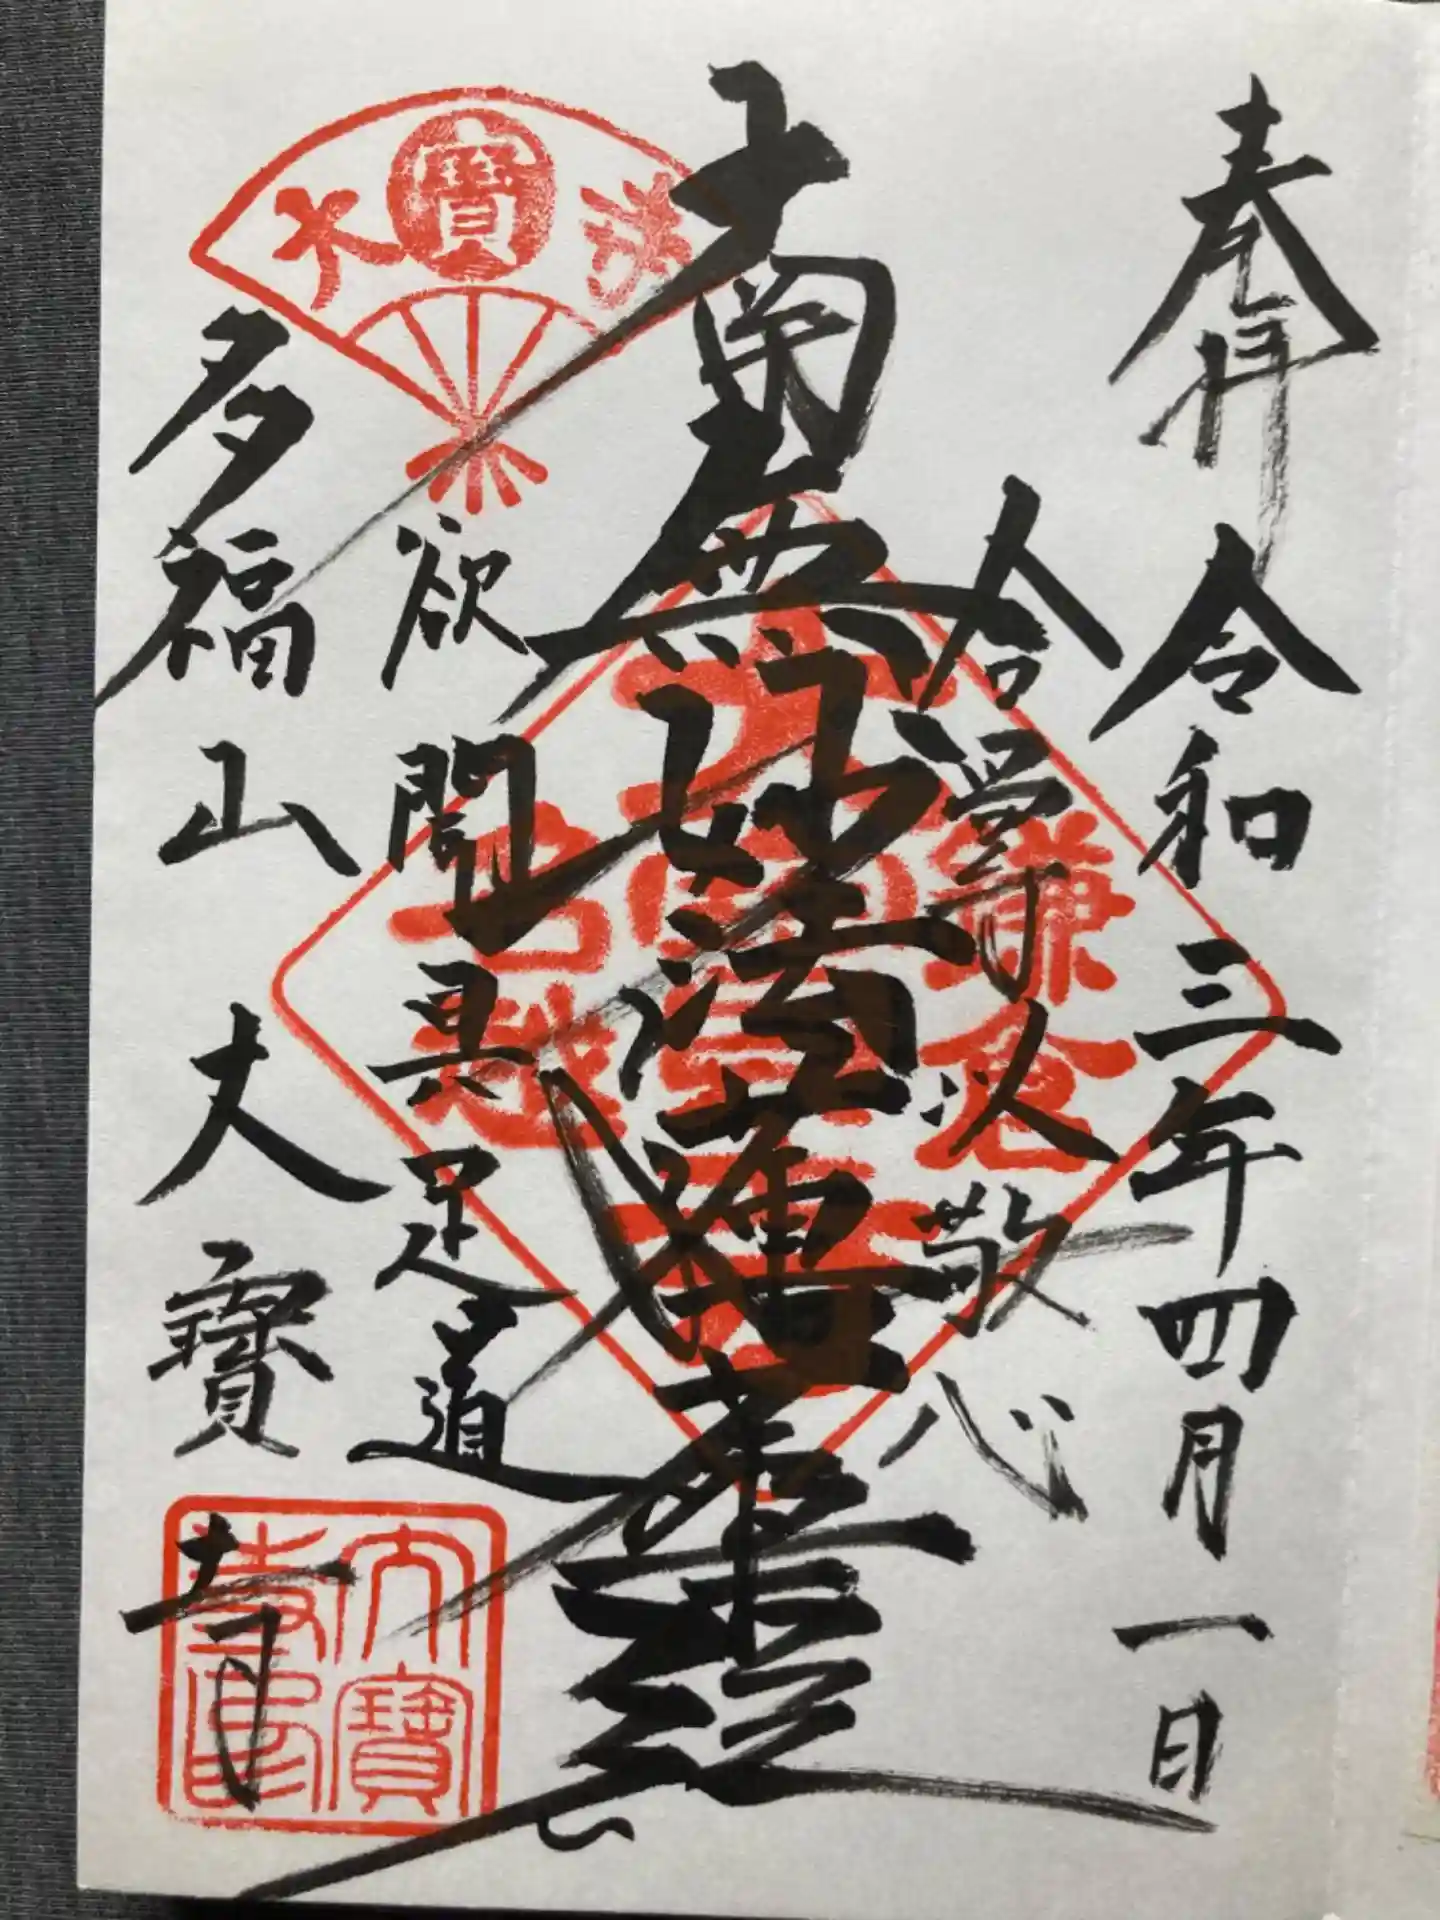 奉拝 令和三年四月一日
合掌以敬心
南無妙法蓮華經
欲聞具足道
多福山大寶寺
寶
鎌倉
名越
大寶寺印